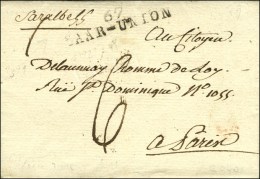 Saralbe
67
SAAR-UNION
Au Citoyen
Delaunnay homme de Loy
Rüe St Dominique No 1055
6
a Paris